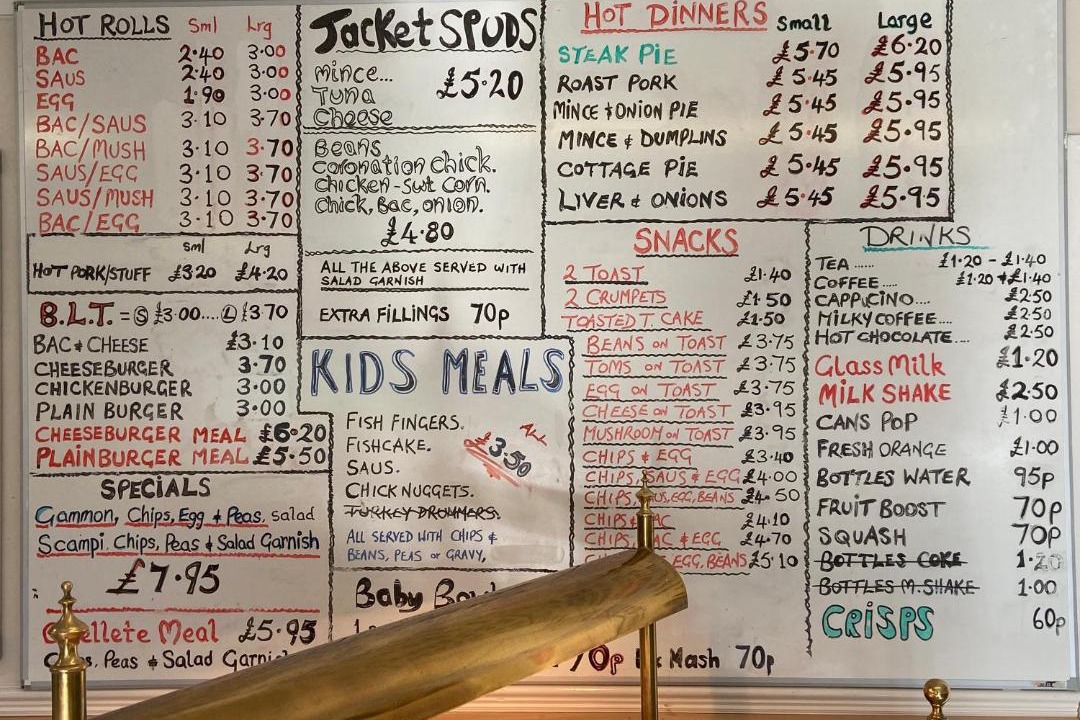 HOT ROLLS Sml Lrg
BAC 2.40 3.00
SAUS 2.40 3.00
EGG 1.90 3.00
BAC/SAUS 3.10 3.70
BAC/MUSH 3.10 3.70
SAUS/EGG 3.10 3.70
SAUS/MUSH 3.10 3.70
BAC/EGG 3.10 3.70
Sml Lrg
HOT PORK/STUFF £3.20 £4.20
B.L.T. = S £3.00....L £3.70
BAC & CHEESE £3.10
CHEESEBURGER 3.70
CHICKENBURGER 3.00
PLAIN BURGER 3.00
CHEESEBURGER MEAL £6.20
PLAINBURGER MEAL £5.50
SPECIALS
Gammon, Chips, Egg & Peas, salad
Scampi, Chips, Peas & Salad Garnish
£7.95
Meal £5.95
Peas & Salad
Jacket SPUDS
Mince...
Tuna £5.20
Cheese
Beans
Coronation Chick.
Chicken-Swt Corn.
Chick, Bac, Onion.
£4.80
ALL THE ABOVE SERVED WITH
SALAD GARNISH
EXTRA FILLINGS 70p
KIDS MEALS
FISH FINGERS.
FISHCAKE.
SAUS.
CHICK NUGGETS.
TURKEY DRUMMERS.
All £3.50
ALL SERVED WITH CHIPS &
BEANS, PEAS or GRAVY,
Baby
HOT DINNERS Small Large
STEAK PIE £5.70 £6.20
ROAST PORK £5.45 £5.95
MINCE & ONION PIE £5.45 £5.95
MINCE & DUMPLINS £5.45 £5.95
COTTAGE PIE £5.45 £5.95
LIVER & ONIONS £5.45 £5.95
SNACKS
2 TOAST £1.40
2 CRUMPETS £1.50
TOASTED T. CAKE £1.50
BEANS ON TOAST £3.75
TOMS ON TOAST £3.75
EGG ON TOAST £3.75
CHEESE ON TOAST £3.95
MUSHROOM ON TOAST £3.95
CHIPS & EGG £3.40
CHIPS, SAUS & EGG £4.00
CHIPS, SAUS, EGG, BEANS £4.50
CHIPS & BAC £4.10
CHIPS, BAC & EGG £4.70
EGG, BEANS £5.10
70p Mash 70p
DRINKS
TEA ...... £1.20 - £1.40
COFFEE.... £1.20 + £1.40
CAPPUCINO.... £2.50
MILKY COFFEE.... £2.50
HOT CHOCOLATE.... £2.50
Glass Milk £1.20
MILK SHAKE £2.50
CANS POP £1.00
FRESH ORANGE £1.00
BOTTLES WATER 95p
FRUIT BOOST 70p
SQUASH 70p
BOTTLES COKE 1.20
BOTTLES M.SHAKE 1.00
CRISPS 60p